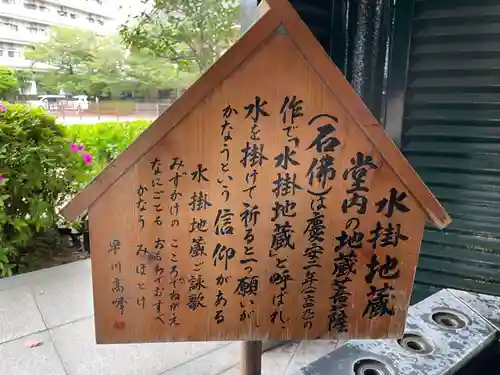 水掛地蔵
堂内の地蔵菩薩
(石佛)は慶安二年(一六四九)の
作で「水掛地蔵」と呼ばれ
水を掛けて祈ると一つ願いが
かなうという信仰がある
水掛地蔵ご詠歌
みずかけの こころでねがえ
なにごとも
かなう みほとけ
早川